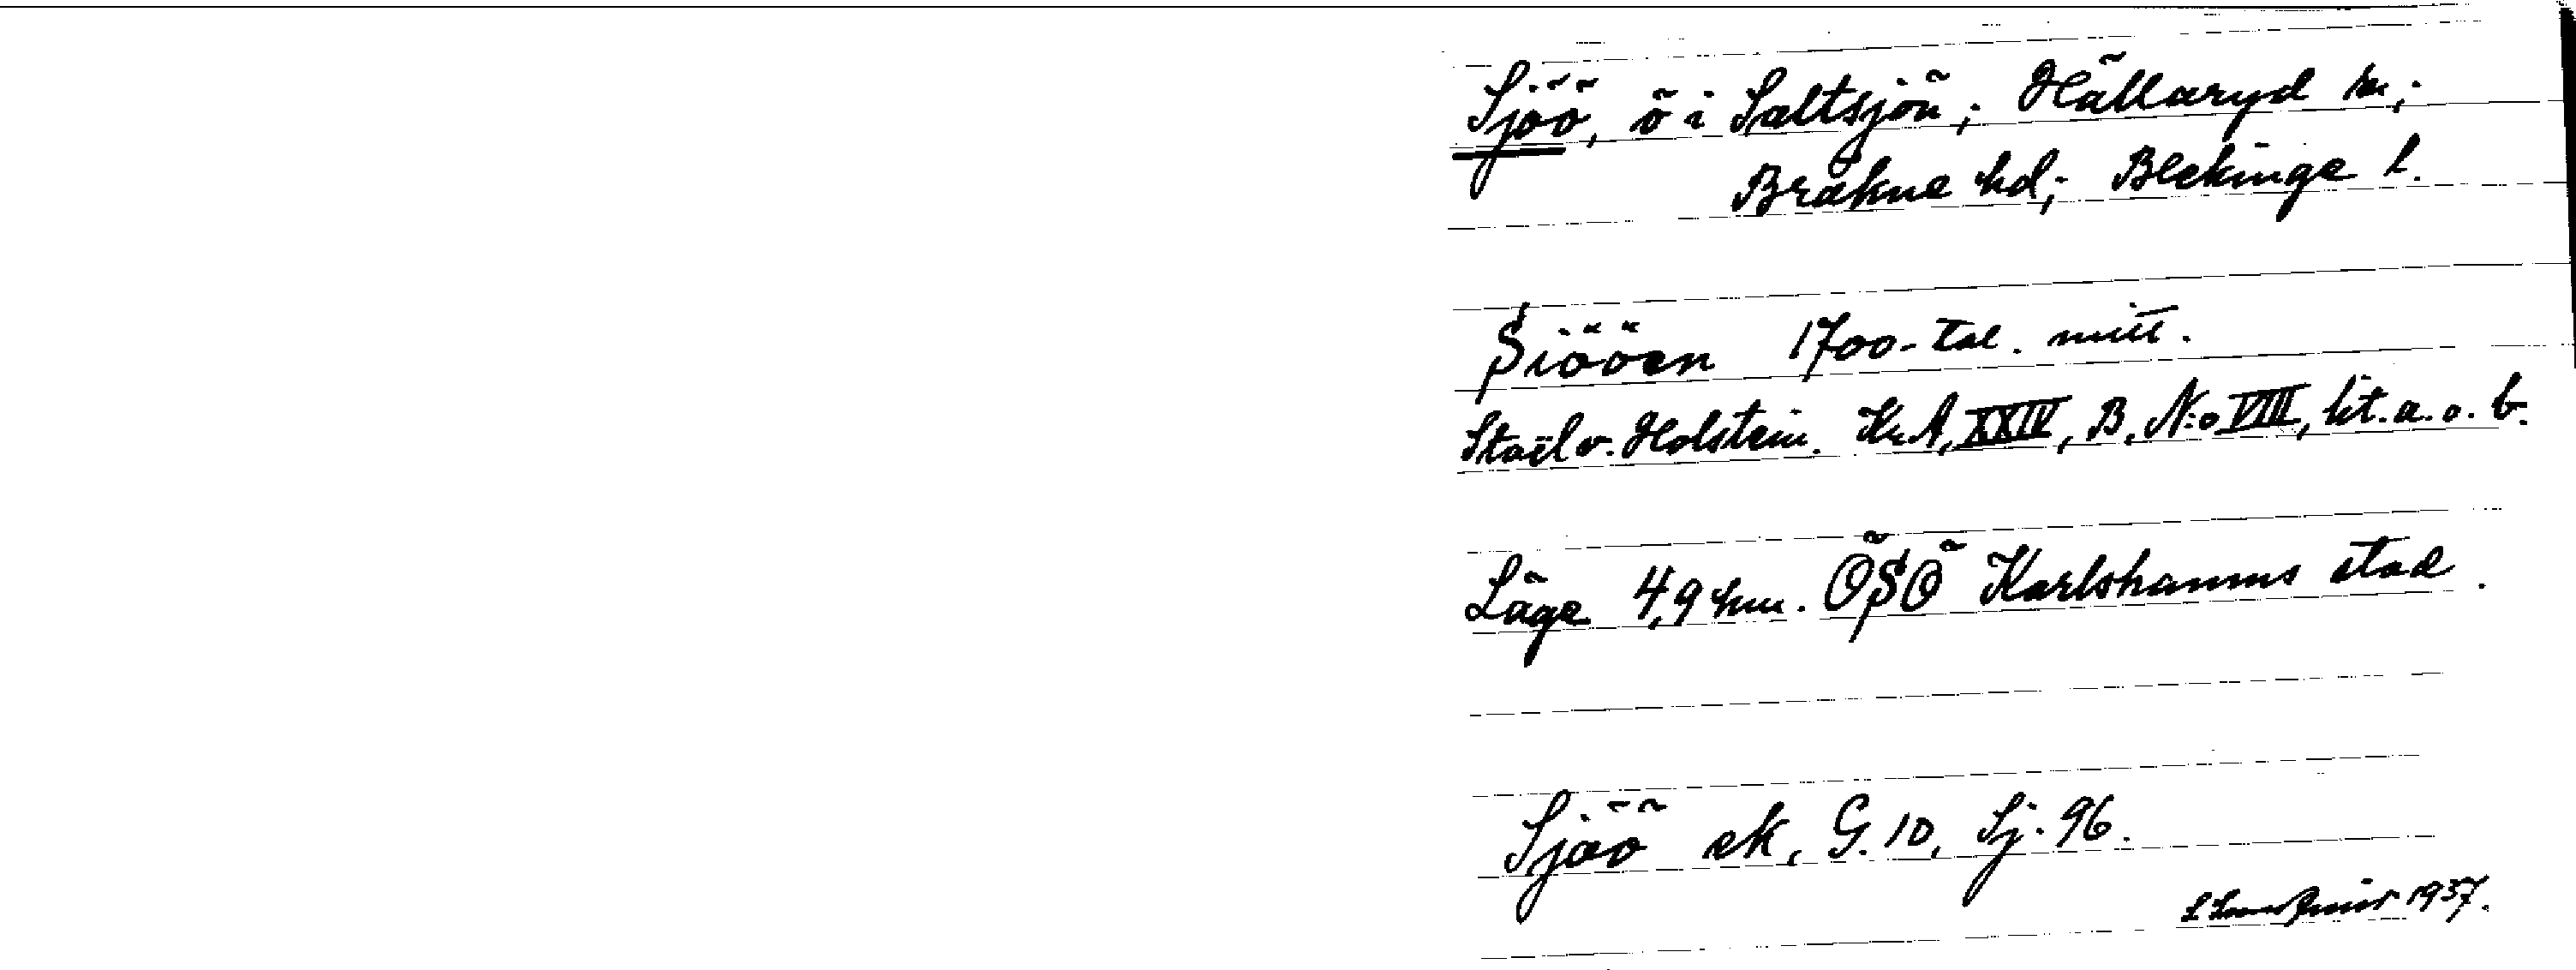 Sjöö, ö i Saltsjön; Hällaryd sn;
Bräkne hd; Blekinge l.
Siööen 1700-tal. mitt.
Staël v. Holstein. Kr.A, XXIV, B, N:o VIII, lit. a. o. b.
Läge 4,9 km. ÖSÖ Karlshamns stad.
Sjöö ek, G. 10, Sj. 96.
1937.